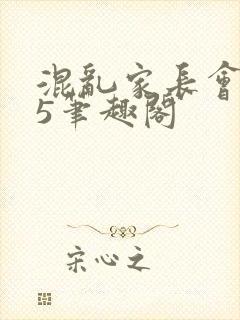 混亂家長會
5筆趣閣
宋心之